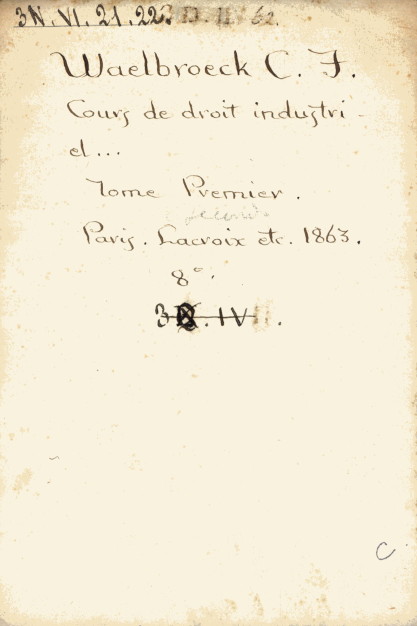 3N. VI. 21. 22
Waelbroeck C. F.
Cours de droit industri-
el...
Tome Premier.
Paris. Lacroix etc. 1863.
8°.
3 . IV .
C